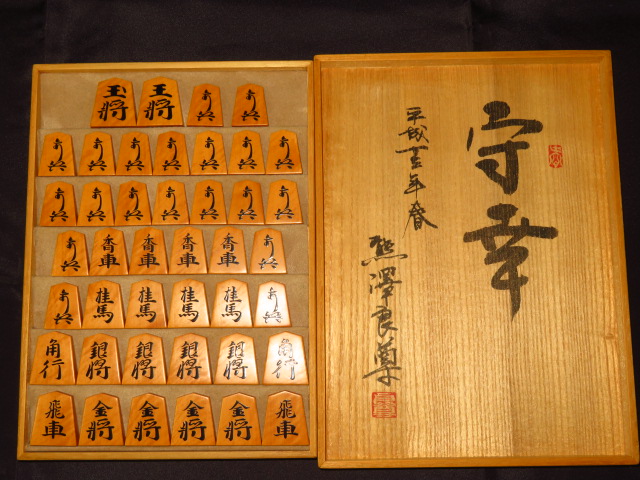 玉将 王将 歩兵 歩兵
歩兵 歩兵 歩兵 歩兵 歩兵 歩兵 歩兵
歩兵 歩兵 歩兵 歩兵 歩兵 歩兵 歩兵
歩兵 香車 香車 香車 香車 歩兵
歩兵 桂馬 桂馬 桂馬 桂馬 歩兵
角行 銀将 銀将 銀将 銀将 角行
飛車 金将 金将 金将 金将 飛車
守幸
平成十五年春
熊澤良尊